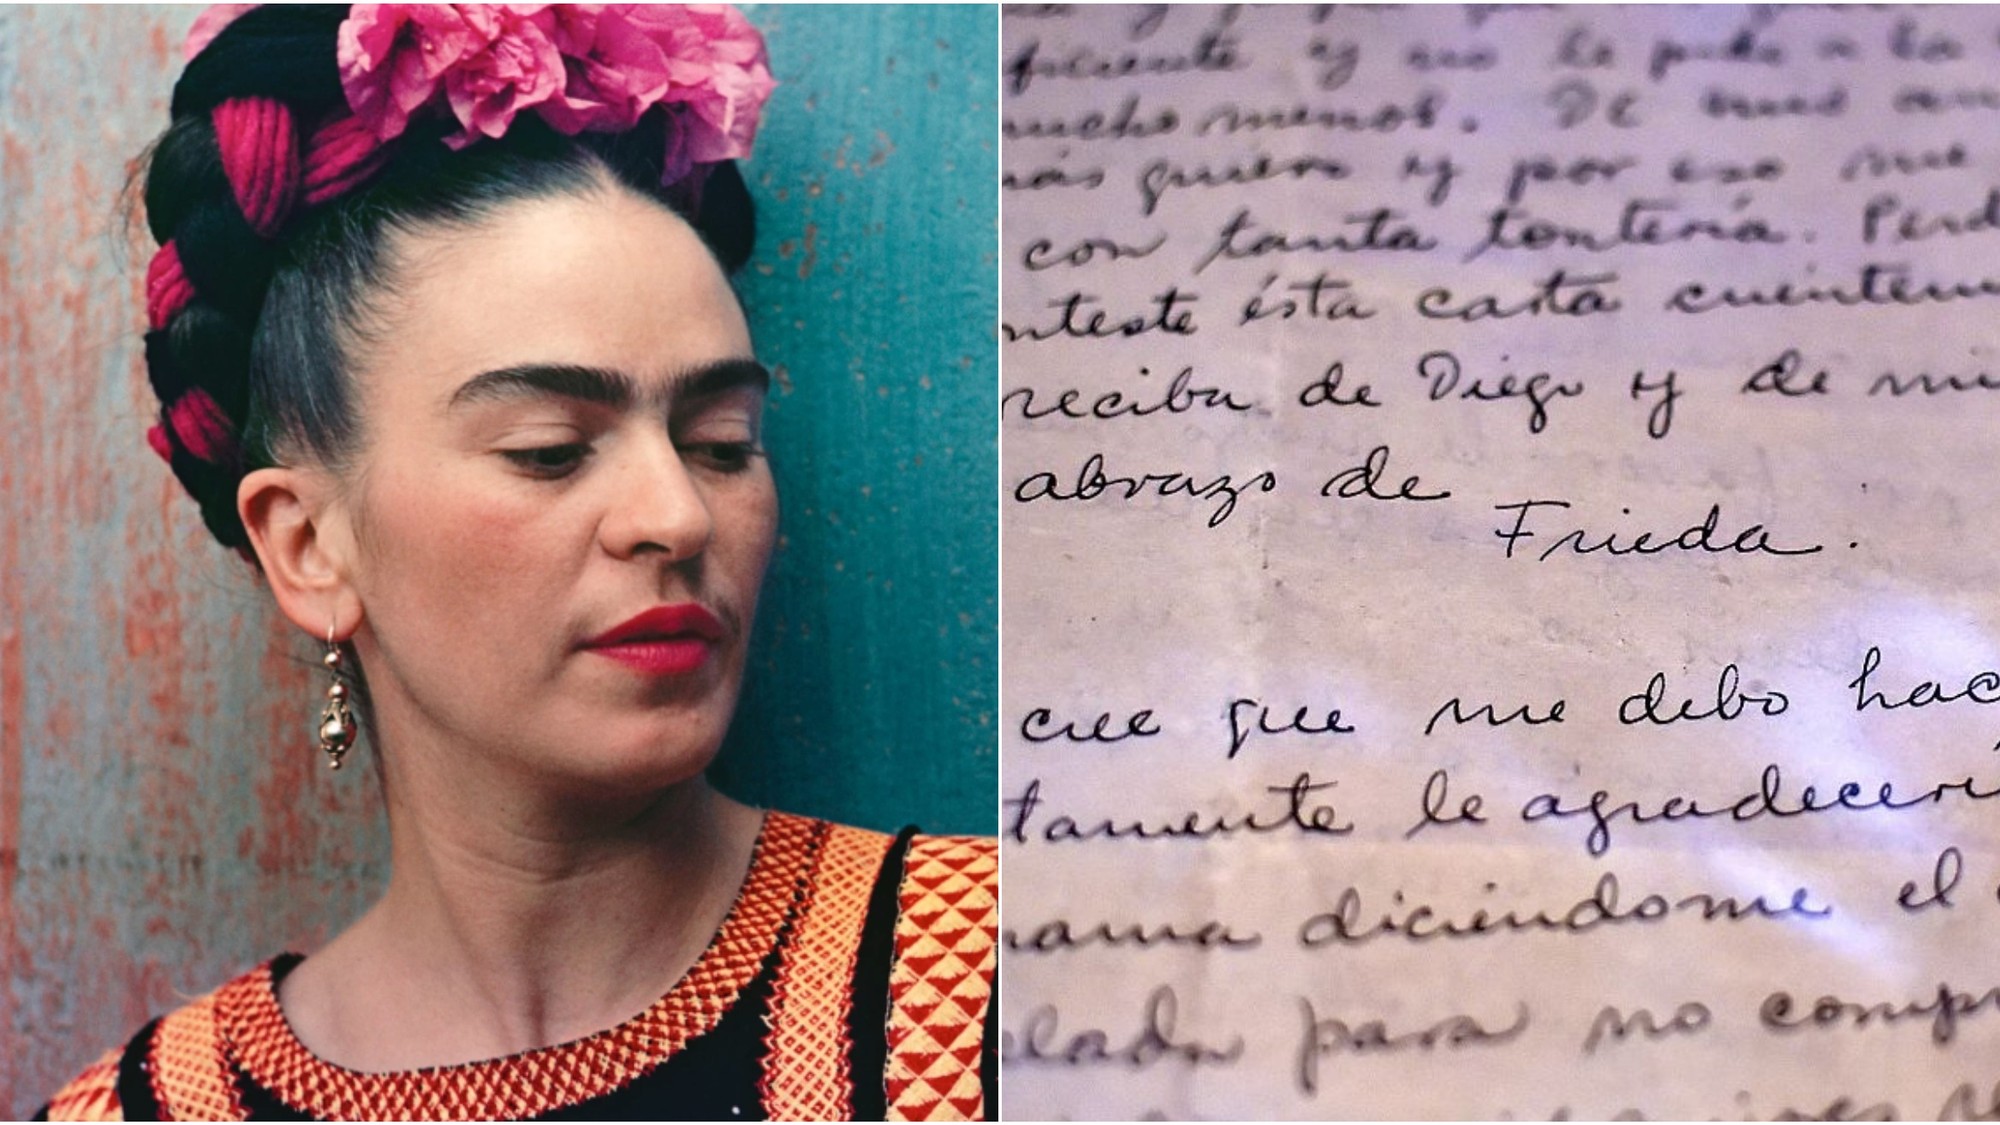 ficiente y no le pide a la
mucho menos. De
más quiero y por eso me
con tanta tontería. Perd
nteste ésta carta cuénteme
reciba de Diego y de mi
abrazo de
Frieda.
cree que me debo hac
tamente le agradecerí
rama diciéndome el
elado para no compr